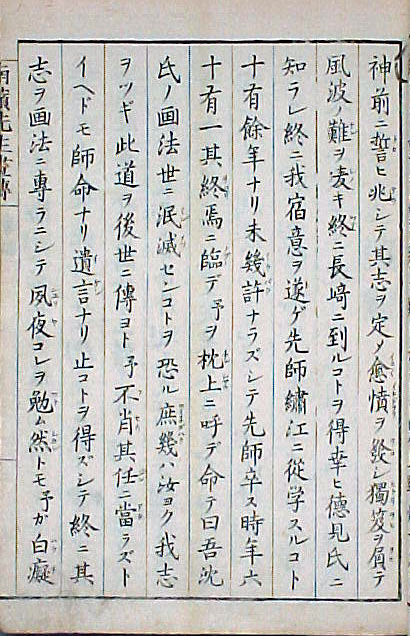 神前ニ誓ヒ兆シテ其志ヲ定メ愈憤ヲ發シ獨笈ヲ負テ
風波ノ難ヲ凌キ終ニ長﨑ニ到ルコトヲ得幸ヒ德見氏ニ
知ラレ終ニ我宿意ヲ遂ゲ先師繡江ニ從学スルコト
十有餘年ナリ未幾許ナラズシテ先師卒ス時年六
十有一其終焉ニ臨デ予ヲ枕上ニ呼デ命テ曰吾沈
氏ノ画法世ニ泯滅センコトヲ恐ル庶幾ハ汝ヨク我志
ヲツギ此道ヲ後世ニ傳ヨト予不肖其任ニ當ラズト
イヘドモ師命ナリ遺言ナリ止コトヲ得ズシテ終ニ其
志ヲ画法ニ專ラニシテ夙夜コレヲ勉ム然トモ予ガ白癡